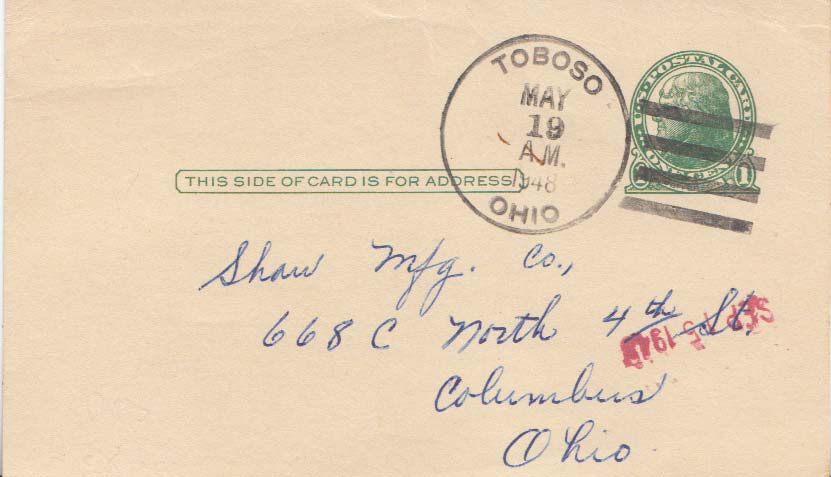 TOBOSO
MAY
19
A.M.
1948
OHIO
U.S. POSTAL CARD
ONE CENT
1
THIS SIDE OF CARD IS FOR ADDRESS
Shaw Mfg. Co.,
668 C North 4th St.
Columbus
Ohio
SEP 15